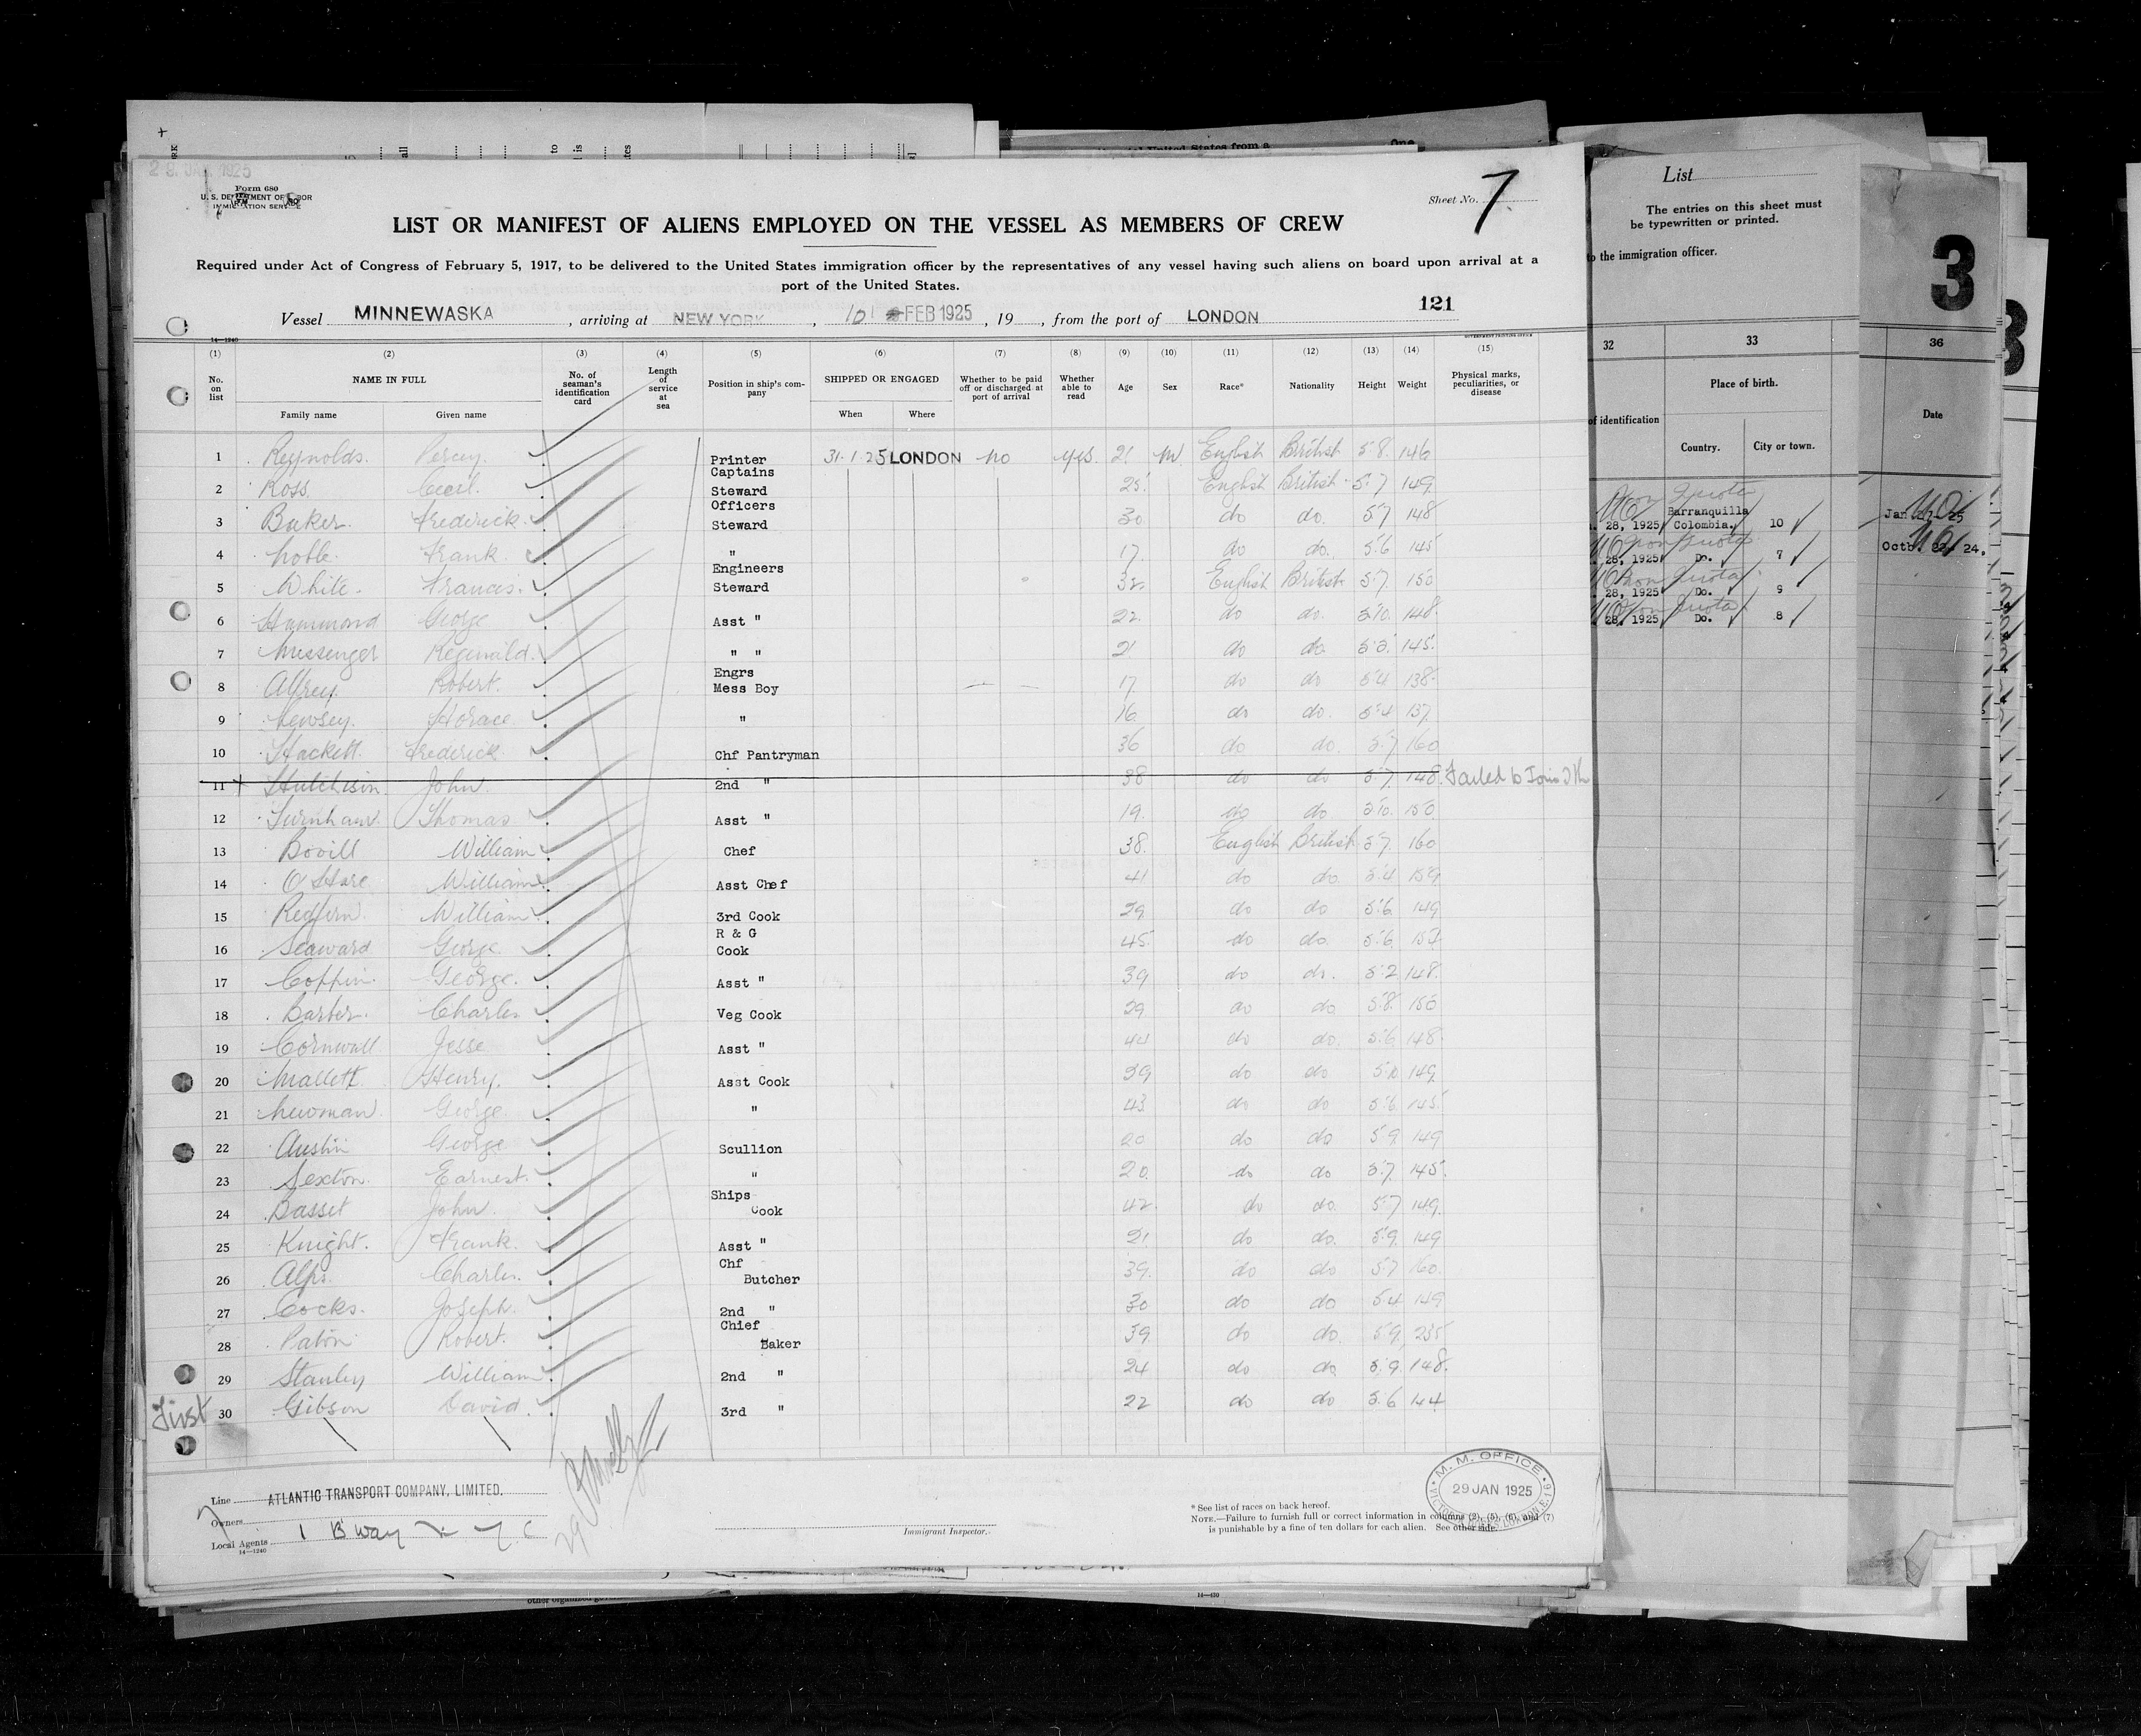 29 JAN 1925
Form 680
U. S. DEPARTMENT OF LABOR
IMMIGRATION SERVICE
Sheet No. 7
LIST OR MANIFEST OF ALIENS EMPLOYED ON THE VESSEL AS MEMBERS OF CREW
Required under Act of Congress of February 5, 1917, to be delivered to the United States immigration officer by the representatives of any vessel having such aliens on board upon arrival at a
port of the United States.
121
Vessel MINNEWASKA, arriving at NEW YORK, 10 FEB 1925, 19, from the port of LONDON
14—1240
GOVERNMENT PRINTING OFFICE
(1) (2) (3) (4) (5) (6) (7) (8) (9) (10) (11) (12) (13) (14) (15)
No. on list NAME IN FULL No. of seaman's identification card Length of service at sea Position in ship's company SHIPPED OR ENGAGED Whether to be paid off or discharged at port of arrival Whether able to read Age Sex Race* Nationality Height Weight Physical marks, peculiarities, or disease
Family name Given name When Where
1 Reynolds. Percy. Printer 31.1.25 LONDON no yes. 21 M English British 5.8. 146
2 Ross. Cecil. Captains Steward 25 English British 5.7 149
3 Baker. Frederick. Officers Steward 30 do do. 5.7 148
4 Noble. Frank. " 17. do do. 5.6 145
5 White. Francis. Engineers Steward 32. English British 5.7. 150
6 Hammond George Asst " 22. do do. 5.10. 148.
7 Messenger Reginald. " " 21 do do. 145.
8 Alfrey. Robert. Engrs Mess Boy 17. do do 5.4 138.
9 Newsey. Horace. " 16. do do. 5.4 137.
10 Hackett. Frederick. Chf Pantryman 36 do do. 5.7 160
11 Hutchison John. 2nd " 38 do do 5.7. 148. Failed to Join
12 Turnham. Thomas Asst " 19. do do 5.10. 150
13 Bovill William Chef 38. English British 5.7. 160
14 O'Hare William. Asst Chef 41 do do. 5.4 159
15 Redfern. William. 3rd Cook 29 do do 5.6. 149
16 Seaward George. R & G Cook 45. do do. 5.6.
17 Coppin. George. Asst " 39 do do. 5.2 148.
18 Barber. Charles Veg Cook 29 do do 5.8. 150
19 Cornwall Jesse Asst " 44 do do. 5.6 148.
20 Mallett. Henry. Asst Cook 39 do do 149
21 Newman. George. " 43 do do 5.6. 145.
22 Austin George. Scullion 20 do do 5.9. 149
23 Sexton. Earnest. " 20. do do 5.7. 145.
24 Basset John. Ships Cook 42. do do. 5.7 149.
25 Knight. Frank. Asst " 21 do do. 5.9. 149
26 Alps. Charles. Chf Butcher 39. do do 5.7 160.
27 Cocks. Joseph. 2nd " 30 do do 5.4 149
28 Paton. Robert. Chief Baker 39 do do. 5.9. 235
29 Stanley William. 2nd " 24 do do 5.9. 148.
First 30 Gibson David. 3rd " 22 do do 5.6 144
Line ATLANTIC TRANSPORT COMPANY, LIMITED.
Owners
Local Agents 1 B'way N Y C
14—1240
Immigrant Inspector.
* See list of races on back hereof.
NOTE.—Failure to furnish full or correct information in columns (2), (5), (6), and (7)
is punishable by a fine of ten dollars for each alien. See other side.
M. M. OFFICE
29 JAN 1925
List
The entries on this sheet must
be typewritten or printed.
to the immigration officer.
3
32 33 36
Place of birth.
of identification Date
Country. City or town.
Non Quota
28, 1925 Barranquilla Colombia. 10 Jan 27-25
Non Quota
28, 1925 Do. 7 Octb. 22 24.
Non Quota
28, 1925 Do. 9
Non Quota
28, 1925 Do. 8
14—430